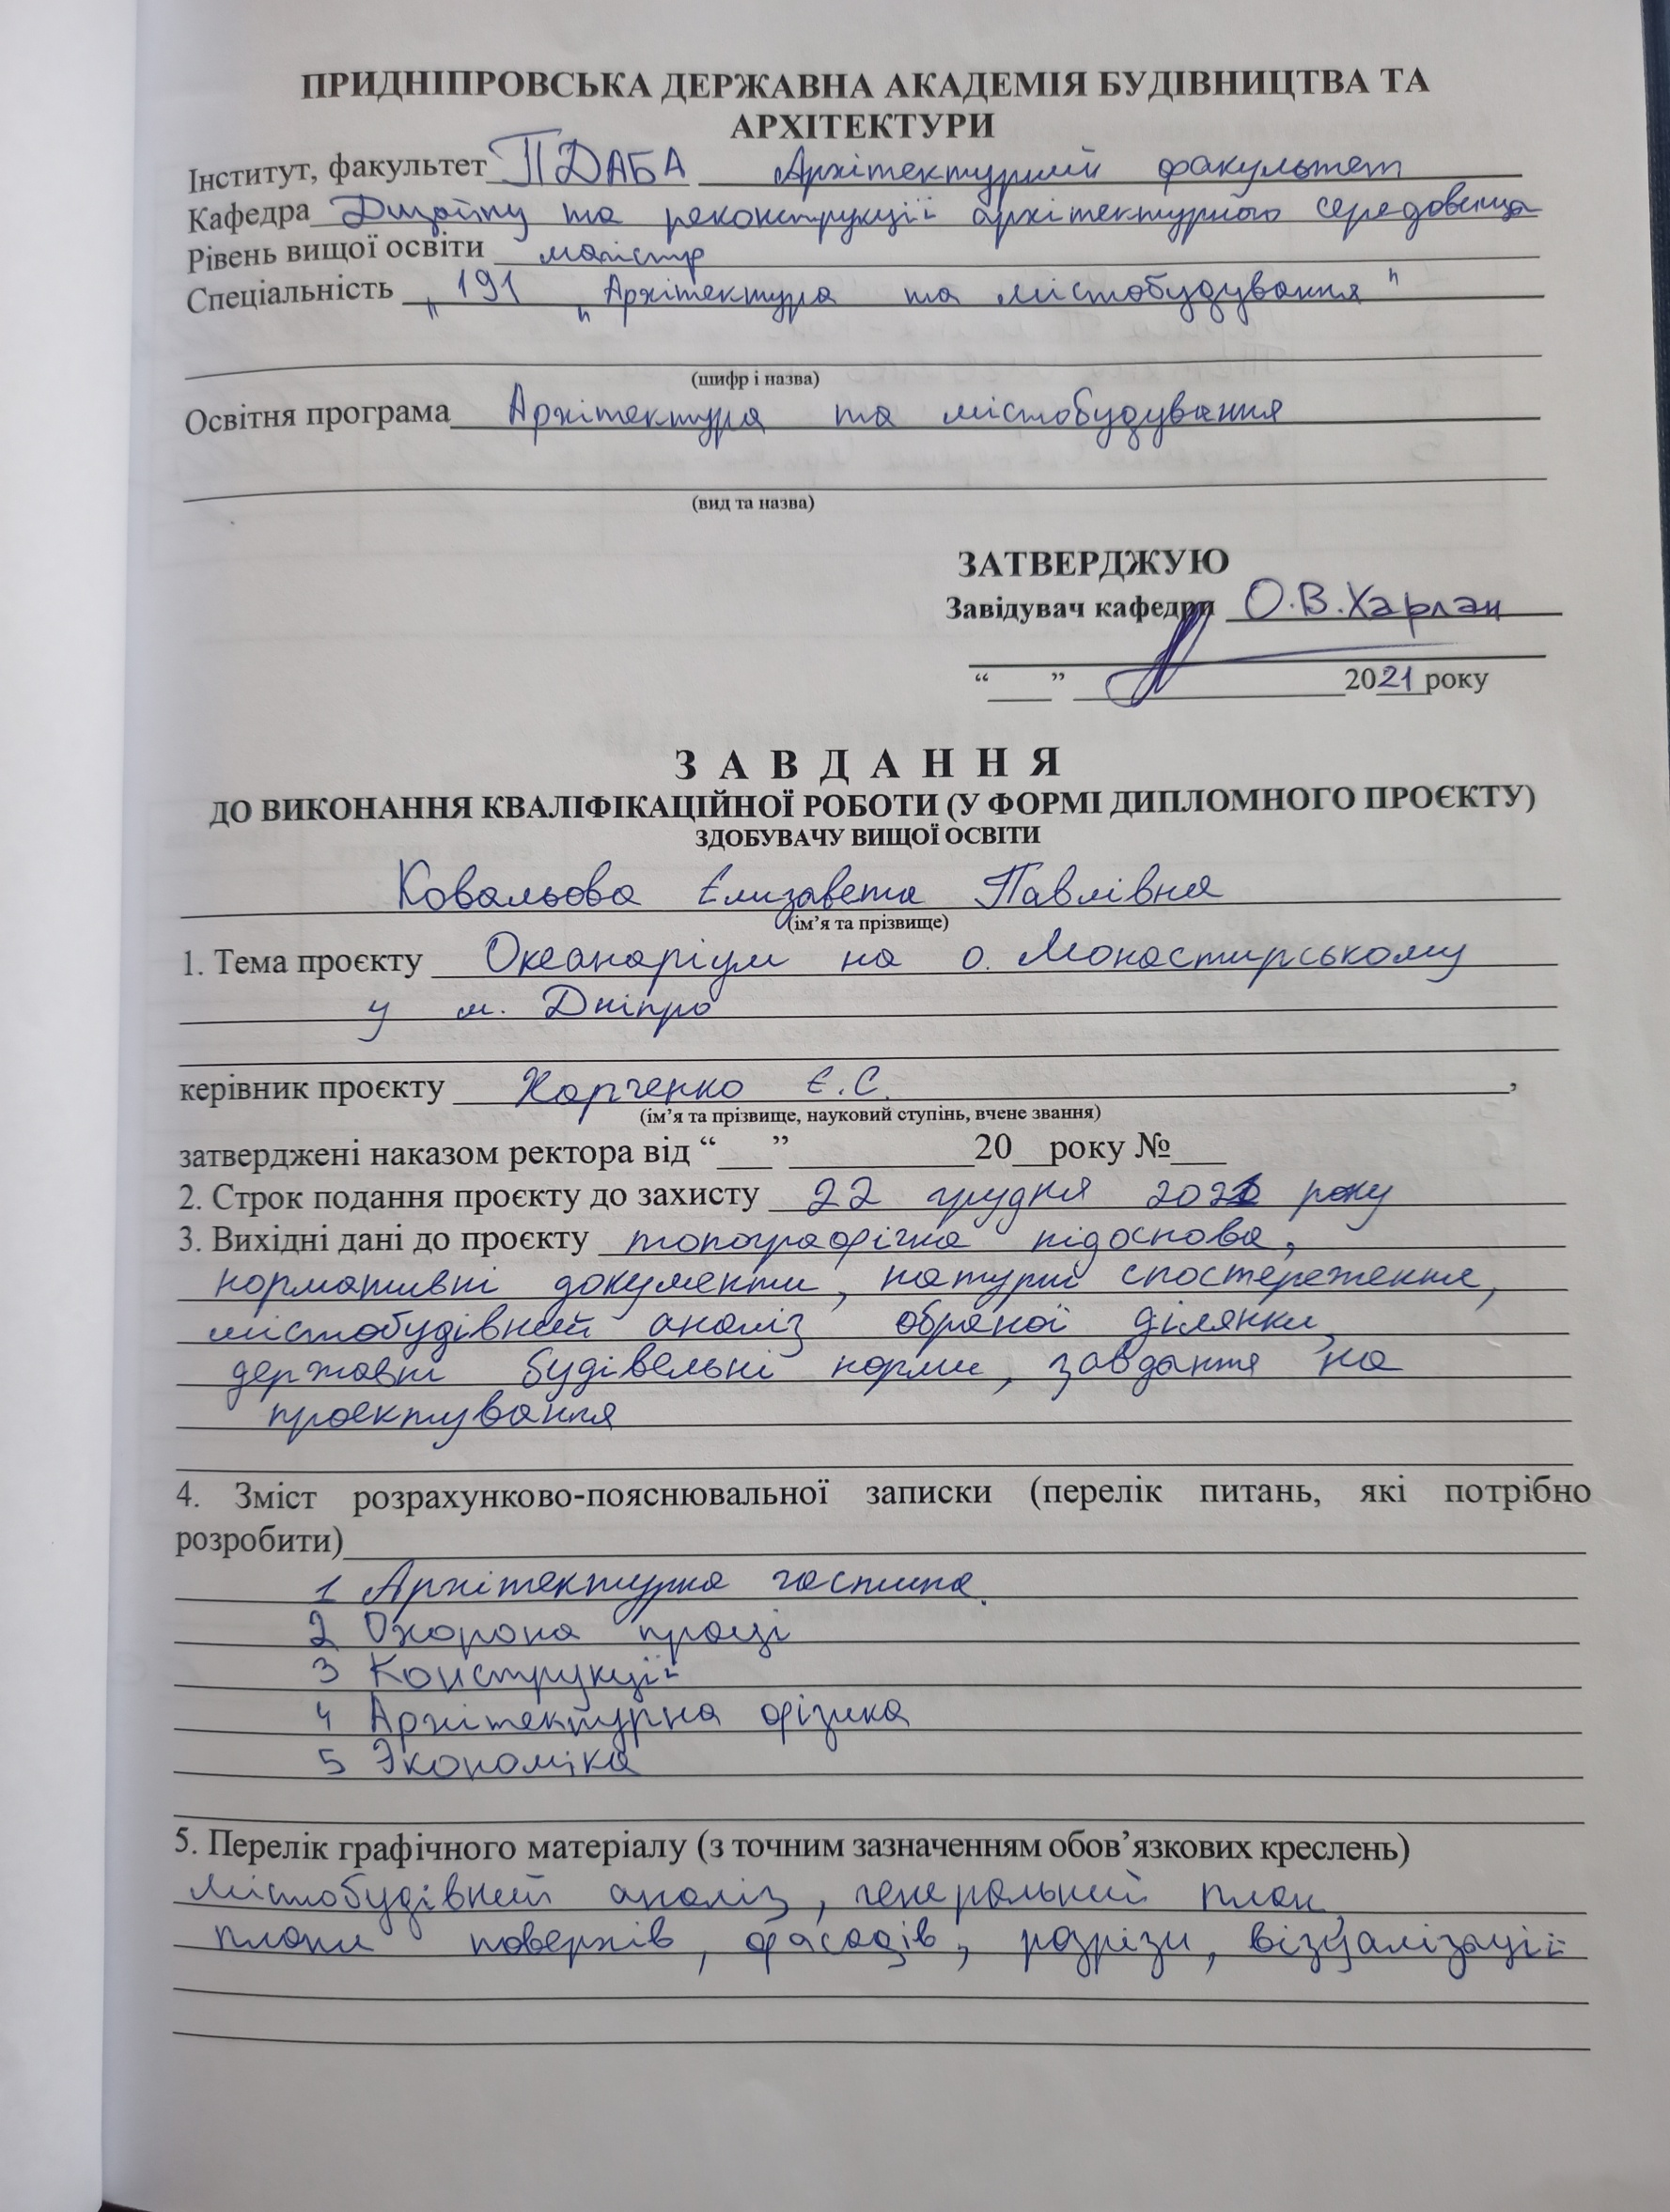 ПРИДНІПРОВСЬКА ДЕРЖАВНА АКАДЕМІЯ БУДІВНИЦТВА ТА
АРХІТЕКТУРИ
Інститут, факультет ПДАБА Архітектурний факультет
Кафедра Дизайну та реконструкції архітектурного середовища
Рівень вищої освіти магістр
Спеціальність „191 „Архітектура та містобудування"
(шифр і назва)
Освітня програма Архітектура та містобудування
(вид та назва)
ЗАТВЕРДЖУЮ
Завідувач кафедри О.В.Харлан
“___” ____________ 2021 року
З А В Д А Н Н Я
ДО ВИКОНАННЯ КВАЛІФІКАЦІЙНОЇ РОБОТИ (У ФОРМІ ДИПЛОМНОГО ПРОЄКТУ)
ЗДОБУВАЧУ ВИЩОЇ ОСВІТИ
Ковальова Єлизавета Павлівна
(ім’я та прізвище)
1. Тема проєкту Океанаріум на о. Монастирському
у м. Дніпро
керівник проєкту Харченко Є.С.,
(ім’я та прізвище, науковий ступінь, вчене звання)
затверджені наказом ректора від “___”__________20__року №___
2. Строк подання проєкту до захисту 22 грудня 2021 року
3. Вихідні дані до проєкту топографічна підоснова,
нормативні документи, натурні спостереження,
містобудівний аналіз обраної ділянки,
державні будівельні норми, завдання на
проєктування
4. Зміст розрахунково-пояснювальної записки (перелік питань, які потрібно
розробити)
1 Архітектурна частина.
2 Охорона праці
3 Конструкції
4 Архітектурна фізика
5 Экономіка
5. Перелік графічного матеріалу (з точним зазначенням обов’язкових креслень)
містобудівний аналіз, генеральний план,
плани поверхів, фасадів, розрізи, візуалізації